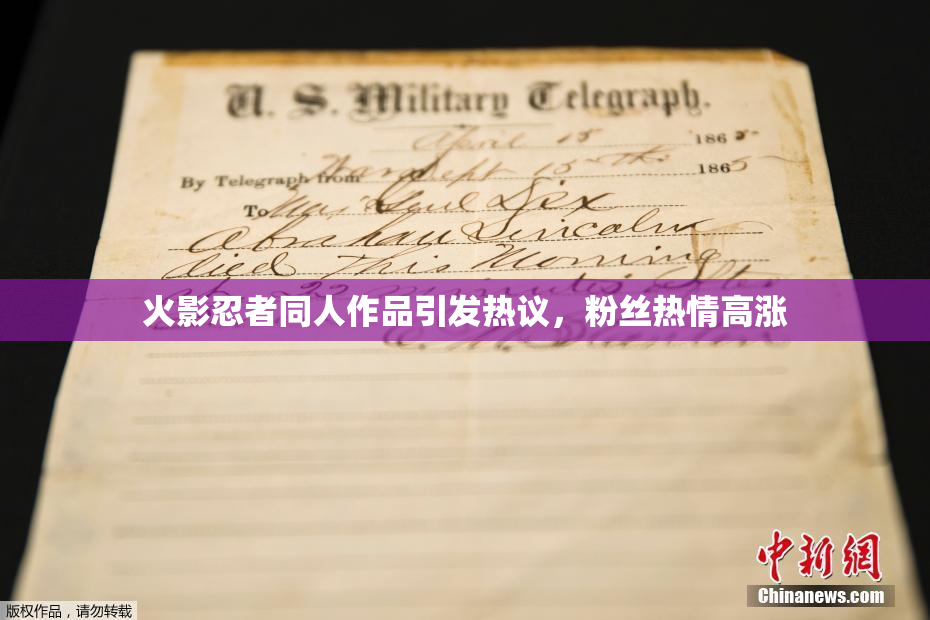 U. S. Military Telegraph.
April 15 1865
By Telegraph from War Dept 15th 1865
To Maj Genl Dix
Abraham Lincoln
died This Morning
22 minutes after
火影忍者同人作品引发热议，粉丝热情高涨
Stanton
中新網
Chinanews.com
版权作品，请勿转载